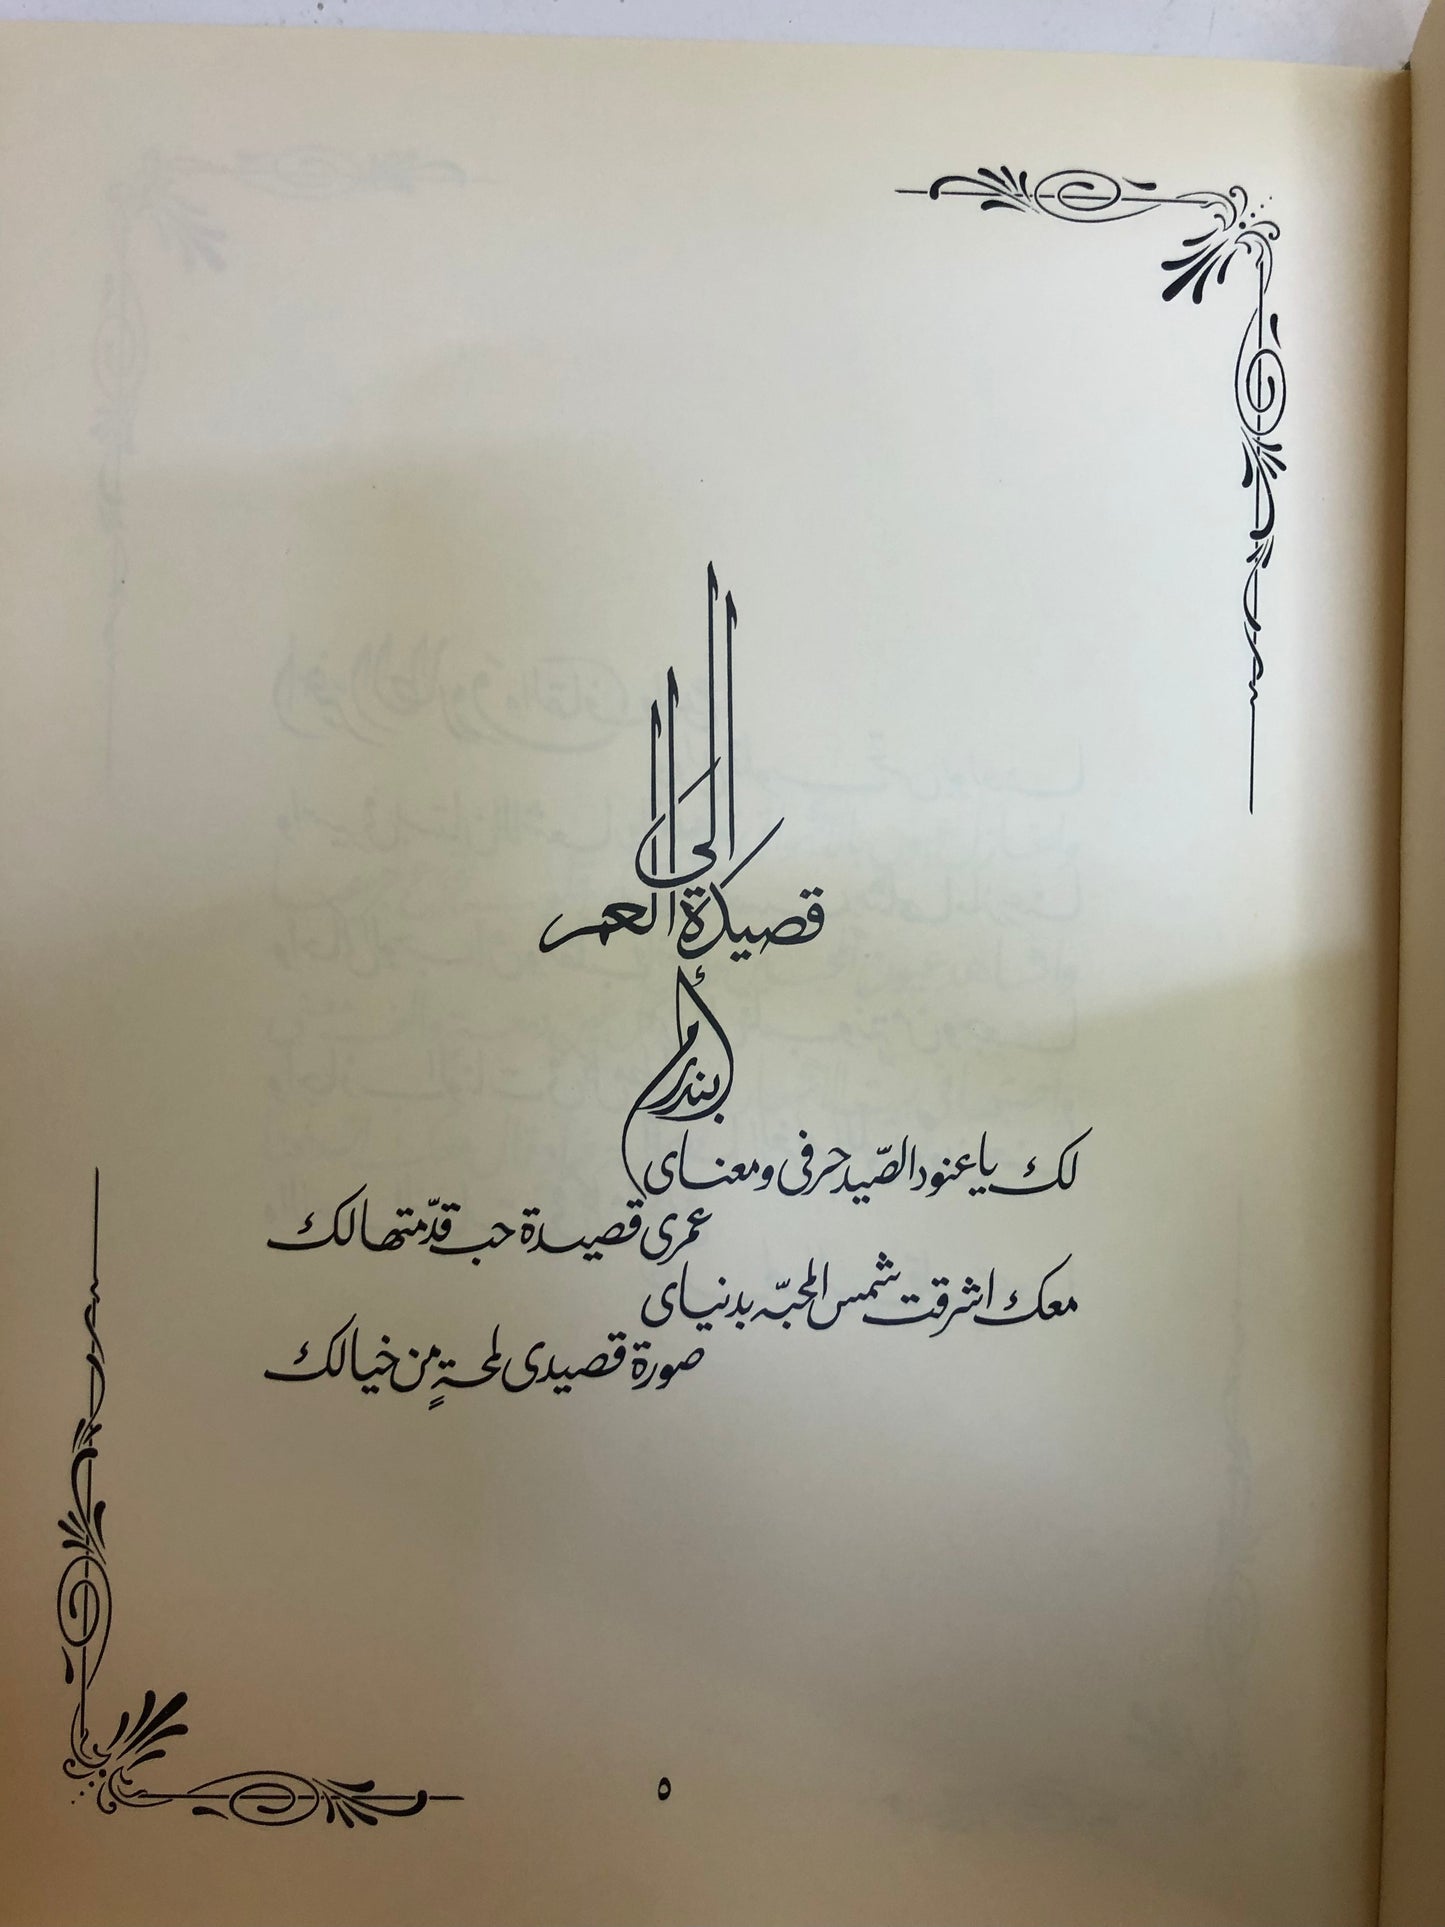 إلى
قصيدة العمر
أم بندر
لك يا عنود الصّيد حرفى ومعناى
عمرى قصيدة حب قدّمتها لك
معك اشرقت شمس المحبّه بدنياى
صورة قصيدى لمحةٍ من خيالك
٥